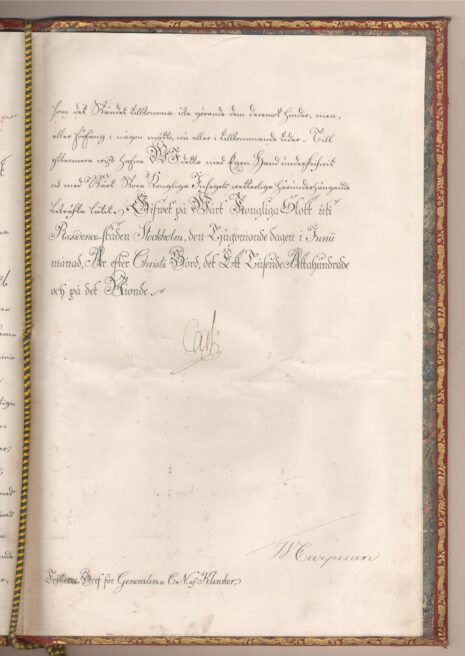 som det Ståndet tillkomma, icke görande dem deremot hinder, men,
eller förfång i någon måtto, nu eller i tillkommande tider. Till
yttermera visso hafve Wi detta med Egen Hand underskrifvit
och med Wårt Stora Kongliga Insegel wetterligen härunderhängande
bekräfta låtit. Gifwet på Wårt Kongliga Slott uti
Residence-staden Stockholm, den Tjugonionde dagen i Junii
månad, År efter Christi Börd, det Ett Tusende Åttahundrade
och på det Nionde.
Carl
Bref för Generalen C. N. af Klercker.